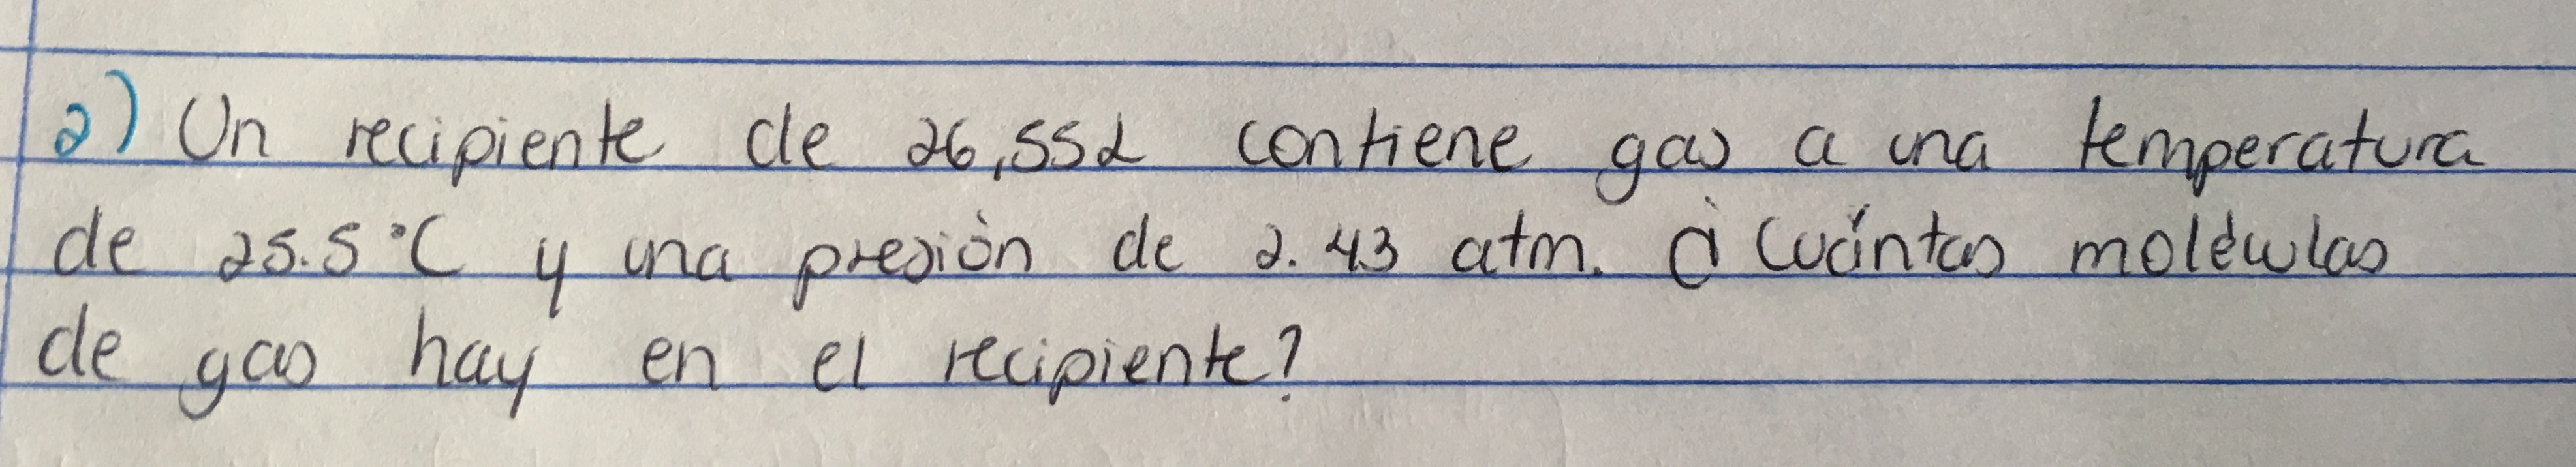 2) Un recipiente de 26,55L contiene gas a una temperatura
de 25.5 °C y una presión de 2.43 atm. ¿Cuántas moléculas
de gas hay en el recipiente?